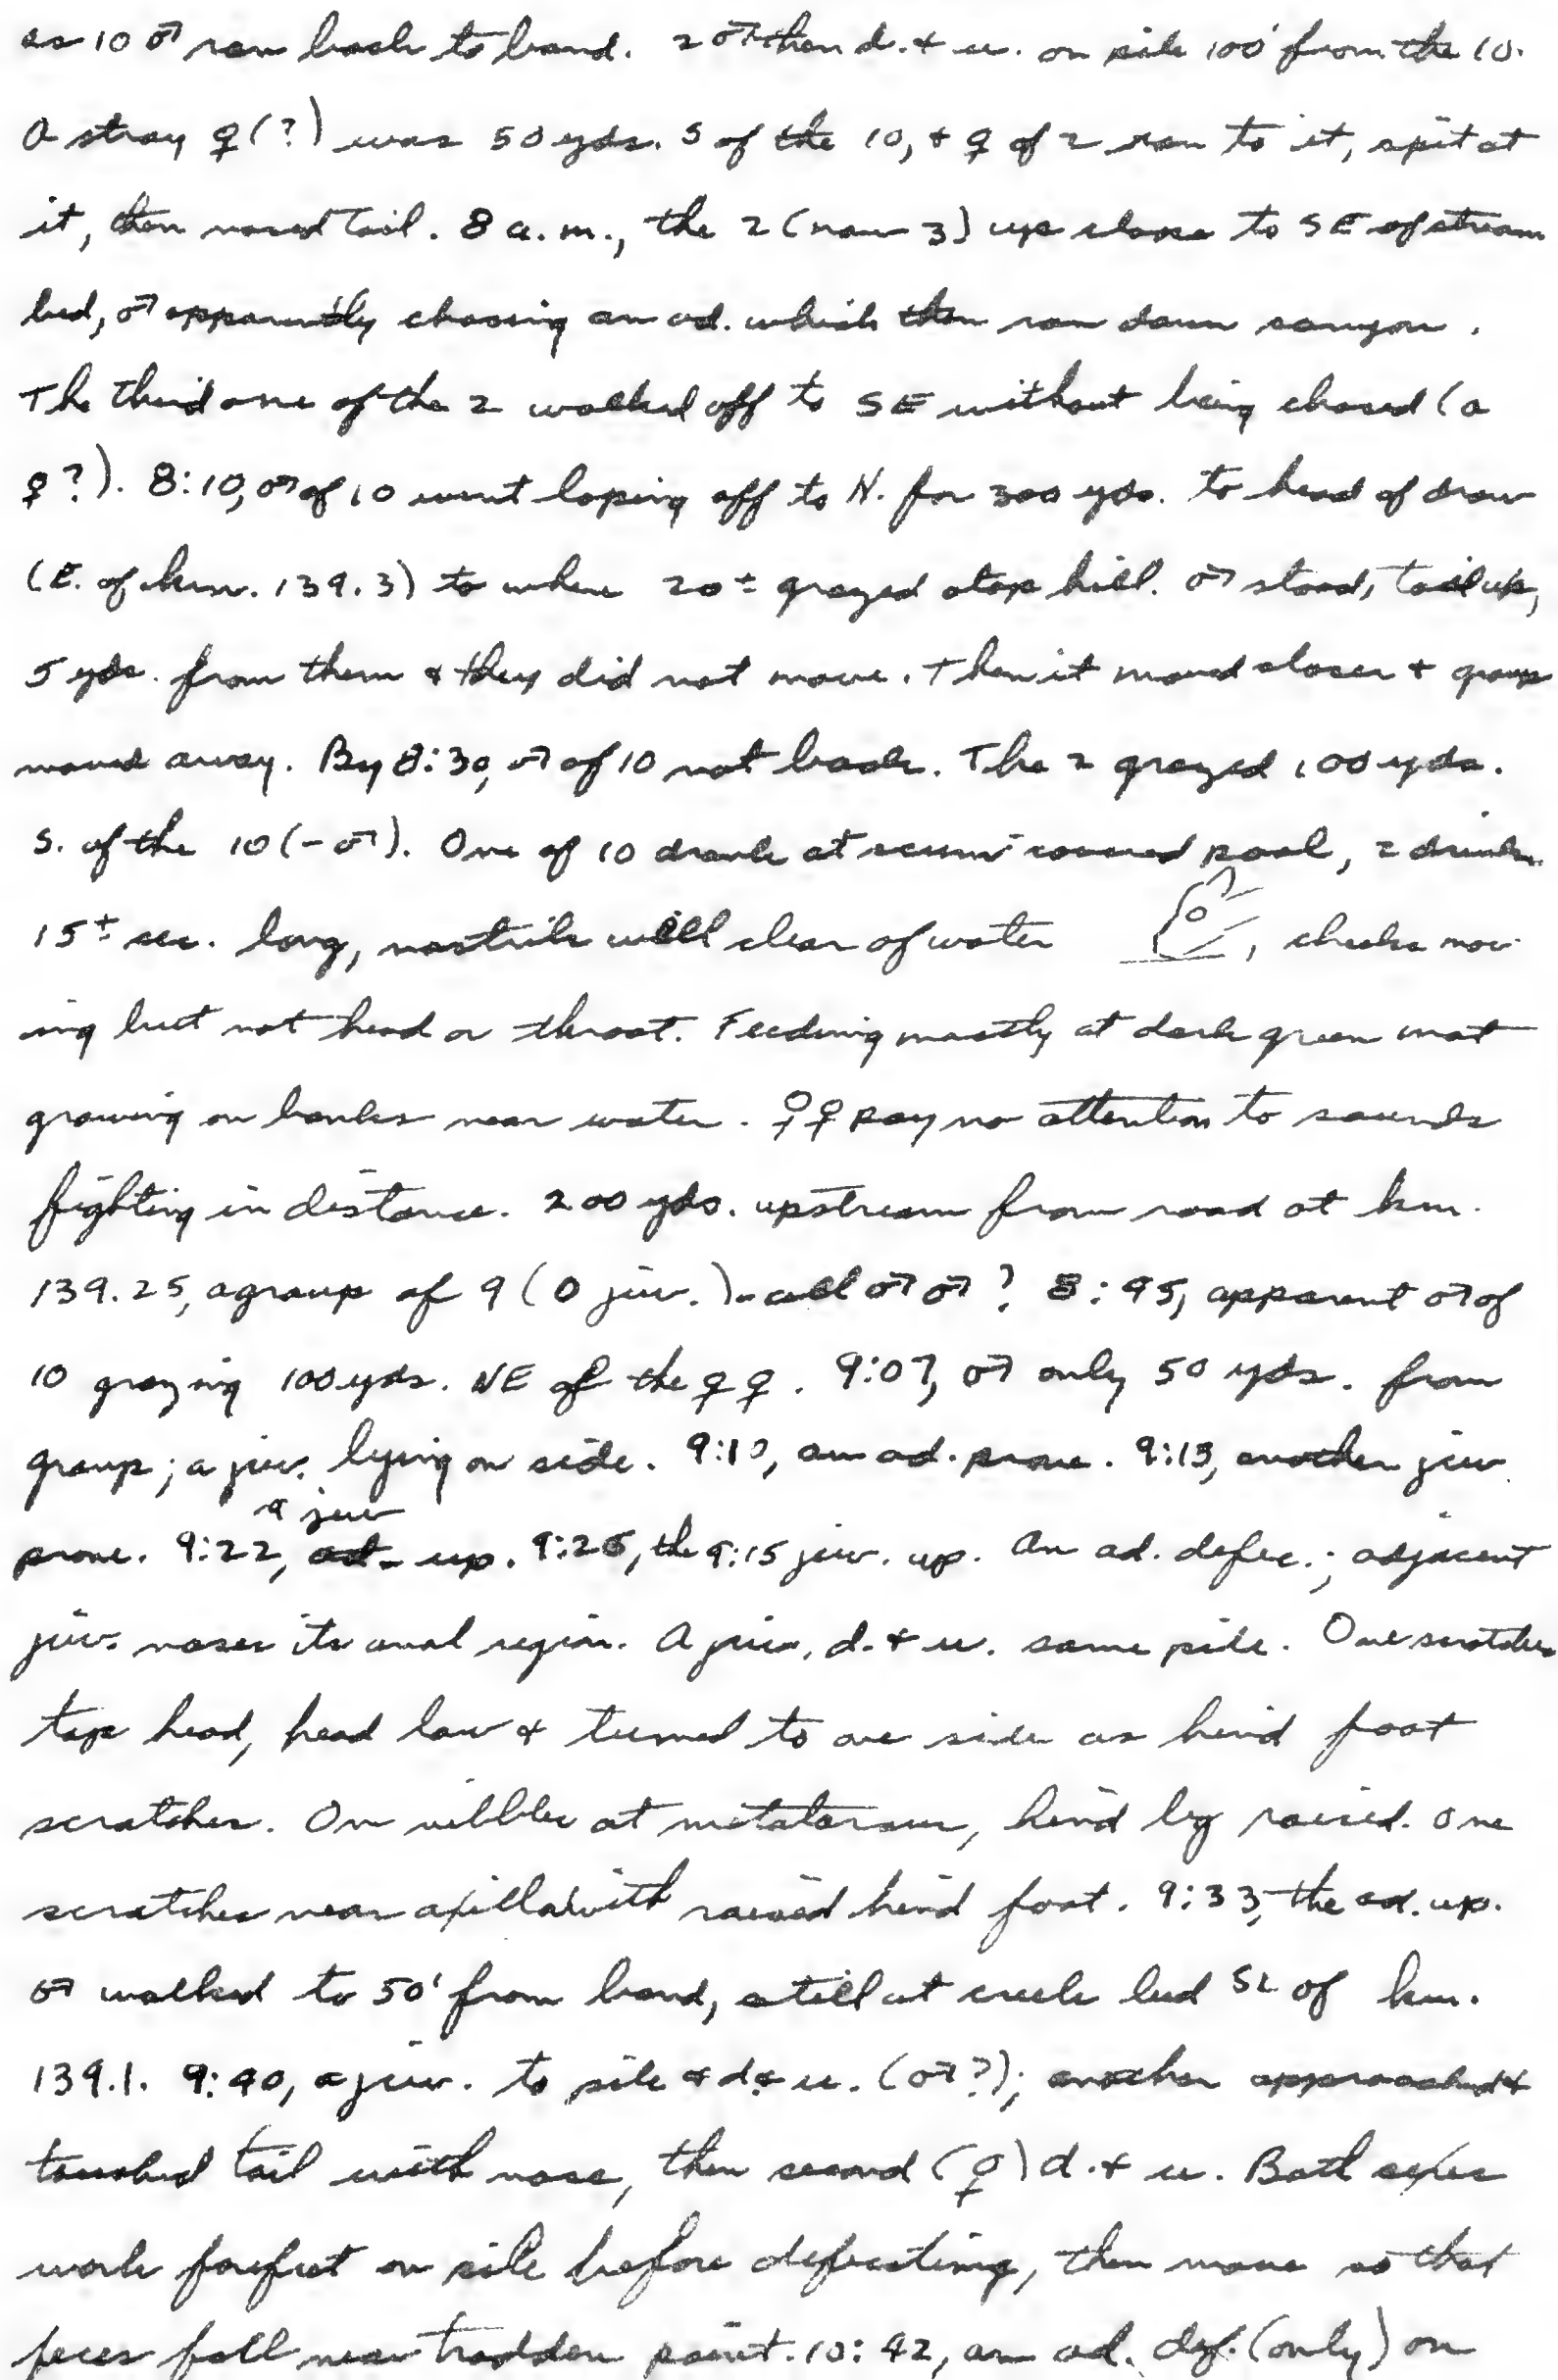 as 10 ♂ ran back to band. 2 ♂ then d. & u. on pile 100' from the 10.
A stray ♀(?) was 50 yds. S of the 10, & ♀ of 2 ran to it, spit at
it, then nosed tail. 8 a.m., the 2 (now 3) up close to SE of stream
bed, ♂ apparently chasing an ad. which then ran down canyon.
The third one of the 2 walked off to SE without being chased (a
♀?). 8:10, ♂ of 10 went loping off to N. for 300 yds. to head of draw
(E. of km. 139.3) to where 20± grazed atop hill. ♂ stood, tail up,
5 yds. from them & they did not move. Then it moved closer & group
moved away. By 8:30, ♂ of 10 not back. The 2 grazed 100 yds.
S. of the 10 (-♂). One of 10 drank at scum covered pool, 2 drinks
15± sec. long, nostrils well clear of water , cheeks mov-
ing but not head or throat. Feeding mostly at dark green mat
growing on banks near water. ♀♀ pay no attention to sounds
fighting in distance. 200 yds. upstream from road at km.
139.25, a group of 9 (0 juv.) - all ♂♂? 8:45, apparent ♂ of
10 grazing 100 yds. NE of the ♀♀. 9:07, ♂ only 50 yds. from
group; a juv. lying on side. 9:10, an ad. prone. 9:15, another juv
a juv
prone. 9:22, ad. up. 9:26, the 9:15 juv. up. An ad. defec.; adjacent
juv. noses its anal region. A juv. d. & u. same pile. One scratches
top head, head low & turned to one side as hind foot
scratches. One nibbles at metatarsus, hind leg raised. One
scratches near axilla with raised hind foot. 9:33, the ad. up.
♂ walked to 50' from band, still at creek bed SE of km.
139.1. 9:40, a juv. to pile & d & u. (♂?); another approached &
touched tail with nose, then second (♀) d. & u. Both sexes
work forefeet on pile before defecating, then move so that
feces fall near trodden point. 10:42, an ad. def. (only) on